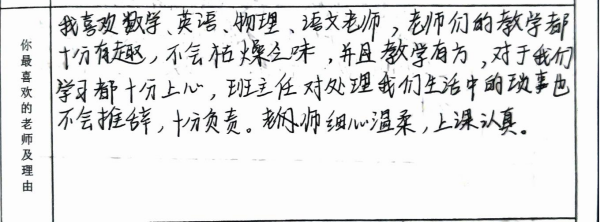 你最喜欢的老师及理由
我喜欢数学、英语、物理、语文老师，老师们的教学都
十分有趣，不会枯燥乏味，并且教学有方，对于我们
学习都十分上心，班主任对处理我们生活中的琐事也
不会推辞，十分负责。老师细心温柔，上课认真。